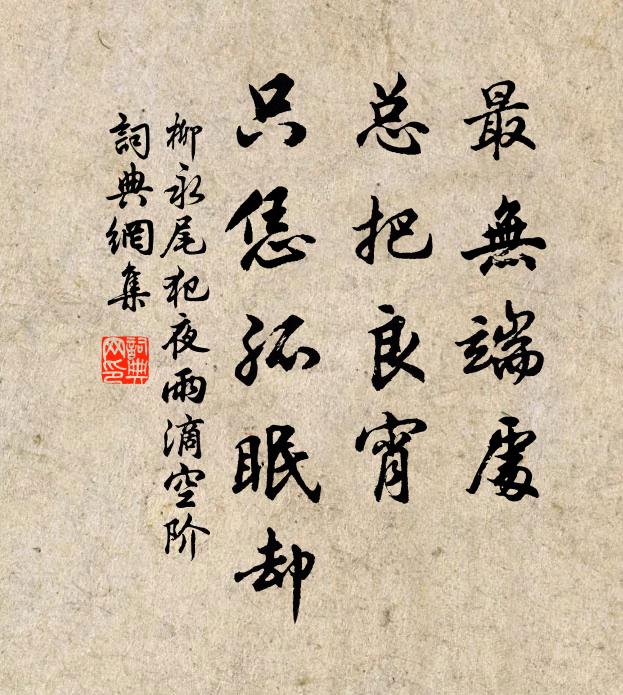 最無端處
总把良宵
只恁孤眠却
柳永尾犯夜雨滴空阶
詞典網集
詞典
网印